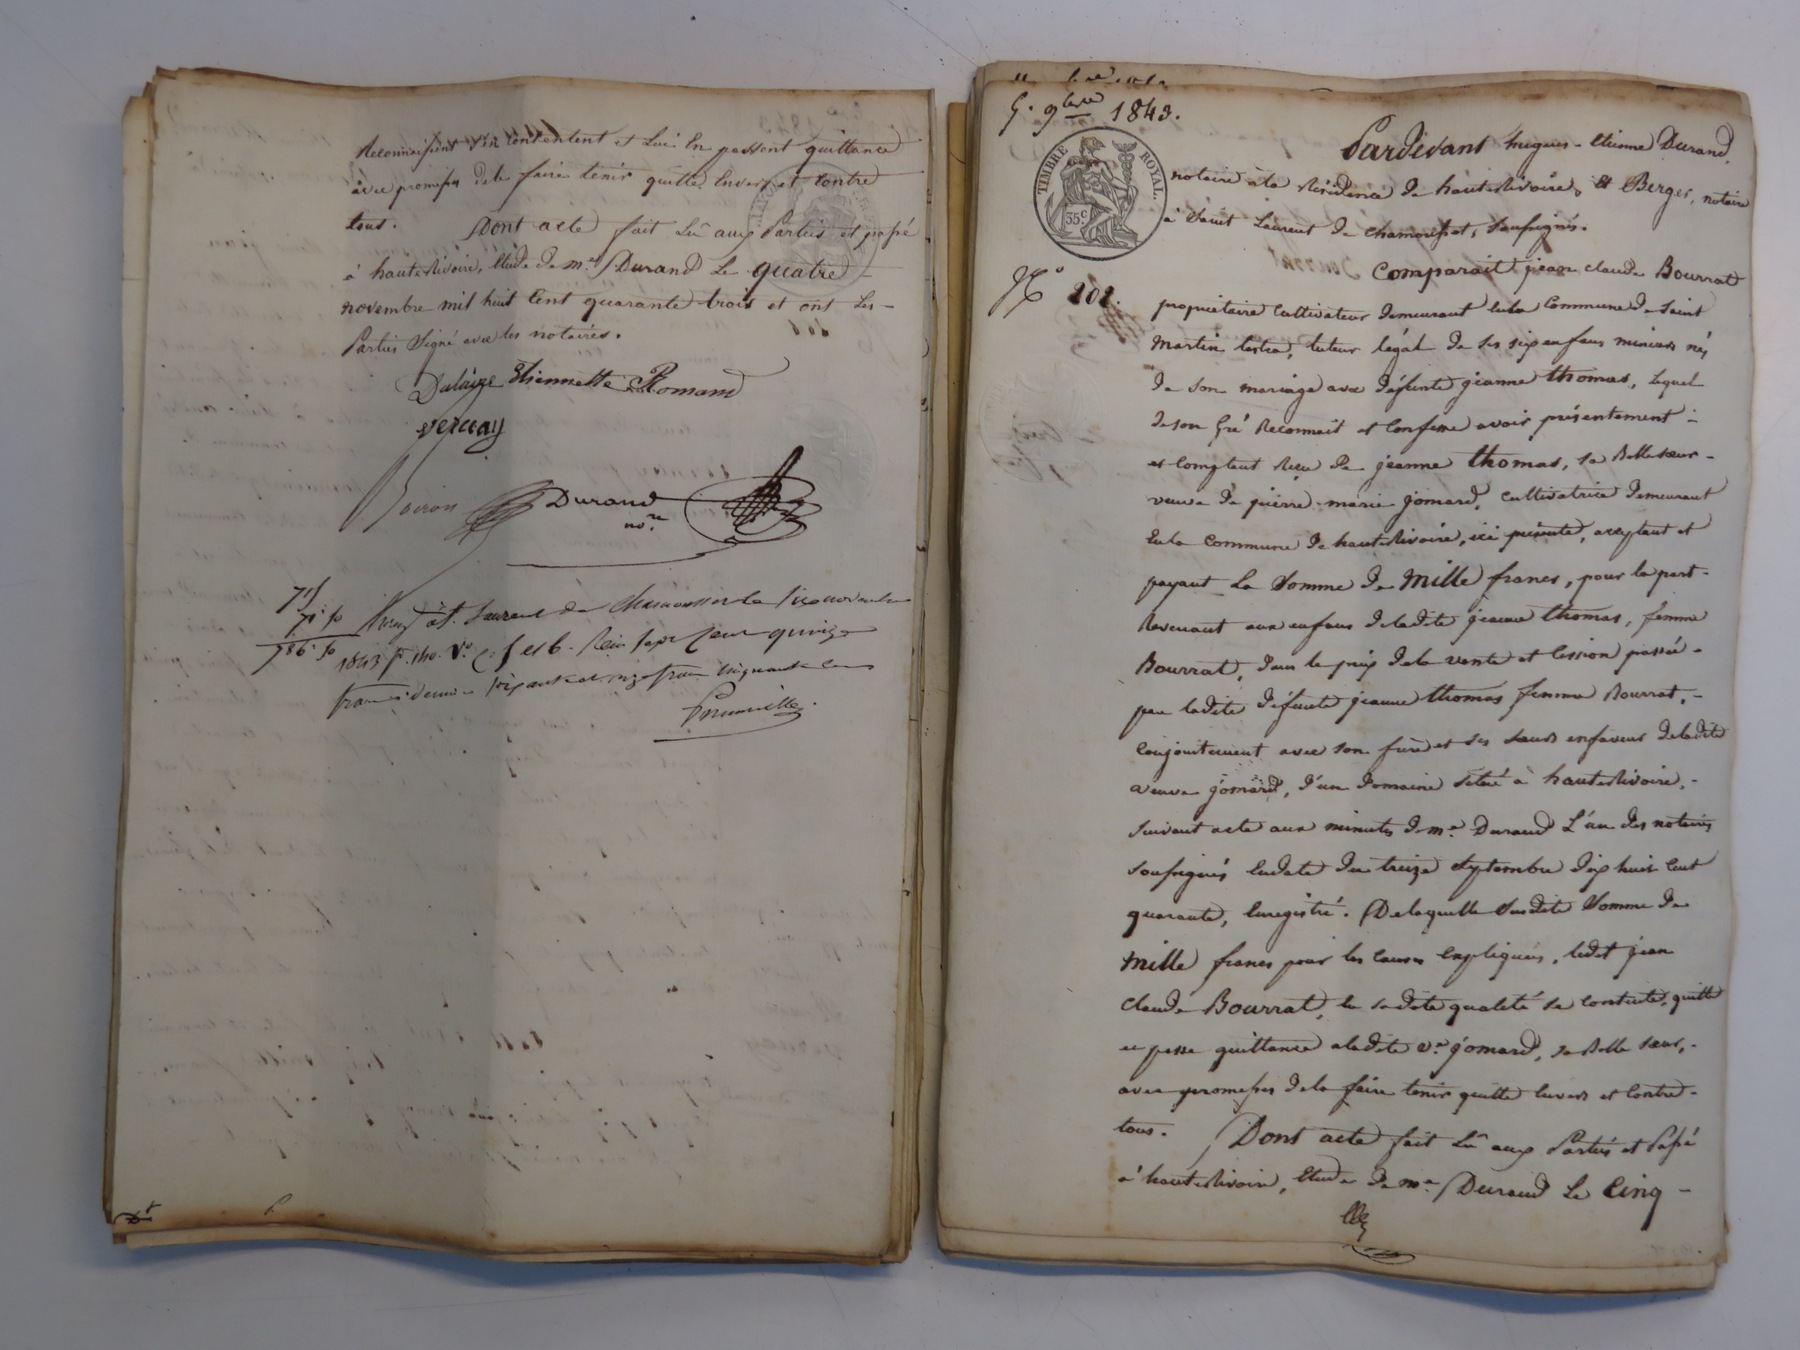 Reconnaissent s'en contentent et lui en passent quittance
avec promesse de le faire tenir quitte envers et contre
tous. Dont acte fait Lu aux Parties et passé
à hauterivoire, Etude de me. Durand Le quatre
novembre mil huit cent quarante trois et ont Les
Parties Signé avec les notaires.
Etiennette Romand
vernay
Durand
nore
71 50
786 50
à St. Laurent de Chamousset le six novembre
1843 fo 140 Vo C. 5 et 6. Reçu sept cent quinze
francs decime soixante et onze francs cinquante cent
5. 9bre 1843.
TIMBRE ROYAL
35 c
Pardevant hugues-Etienne Durand,
notaire à la Résidence de hauterivoire, Et Berger, notaire
à Saint Laurent de chamousset, soussignés.
No 202.
Comparait jean claude Bourrat
propriétaire cultivateur demeurant en la Commune de Saint
Martin lestra, tuteur légal de ses six enfans mineurs nés
de son mariage avec défunte jeanne thomas, lequel
de son gré Reconnait et confesse avoir présentement
et comptant Reçu de jeanne thomas, sa Belle sœur
veuve de pierre-marie jomard, cultivatrice demeurant
en la Commune de hauterivoire, ici présente, acceptant et
payant La Somme de Mille francs, pour la part
Revenant aux enfans de ladite jeanne thomas, femme
Bourrat, dans le prix de la vente et cession passée
par ladite défunte jeanne thomas femme Bourrat,
conjointement avec son frère et ses sœurs en faveur de ladite
veuve jomard, d'un domaine situé à hauterivoire,
suivant acte aux minutes de me. Durand L'un des notaires
soussignés en date du treize septembre dix huit cent
quarante, Enregistré. De laquelle susdite Somme de
Mille francs pour les causes Expliquées, ledit jean
claude Bourrat, en sadite qualité se contente, quitte
et passe quittance à ladite ve. jomard, sa Belle sœur,
avec promesse de la faire tenir quitte envers et contre
tous. Dont acte fait Lu aux Parties et Passé
à hauterivoire, Etude de me. Durand Le Cinq